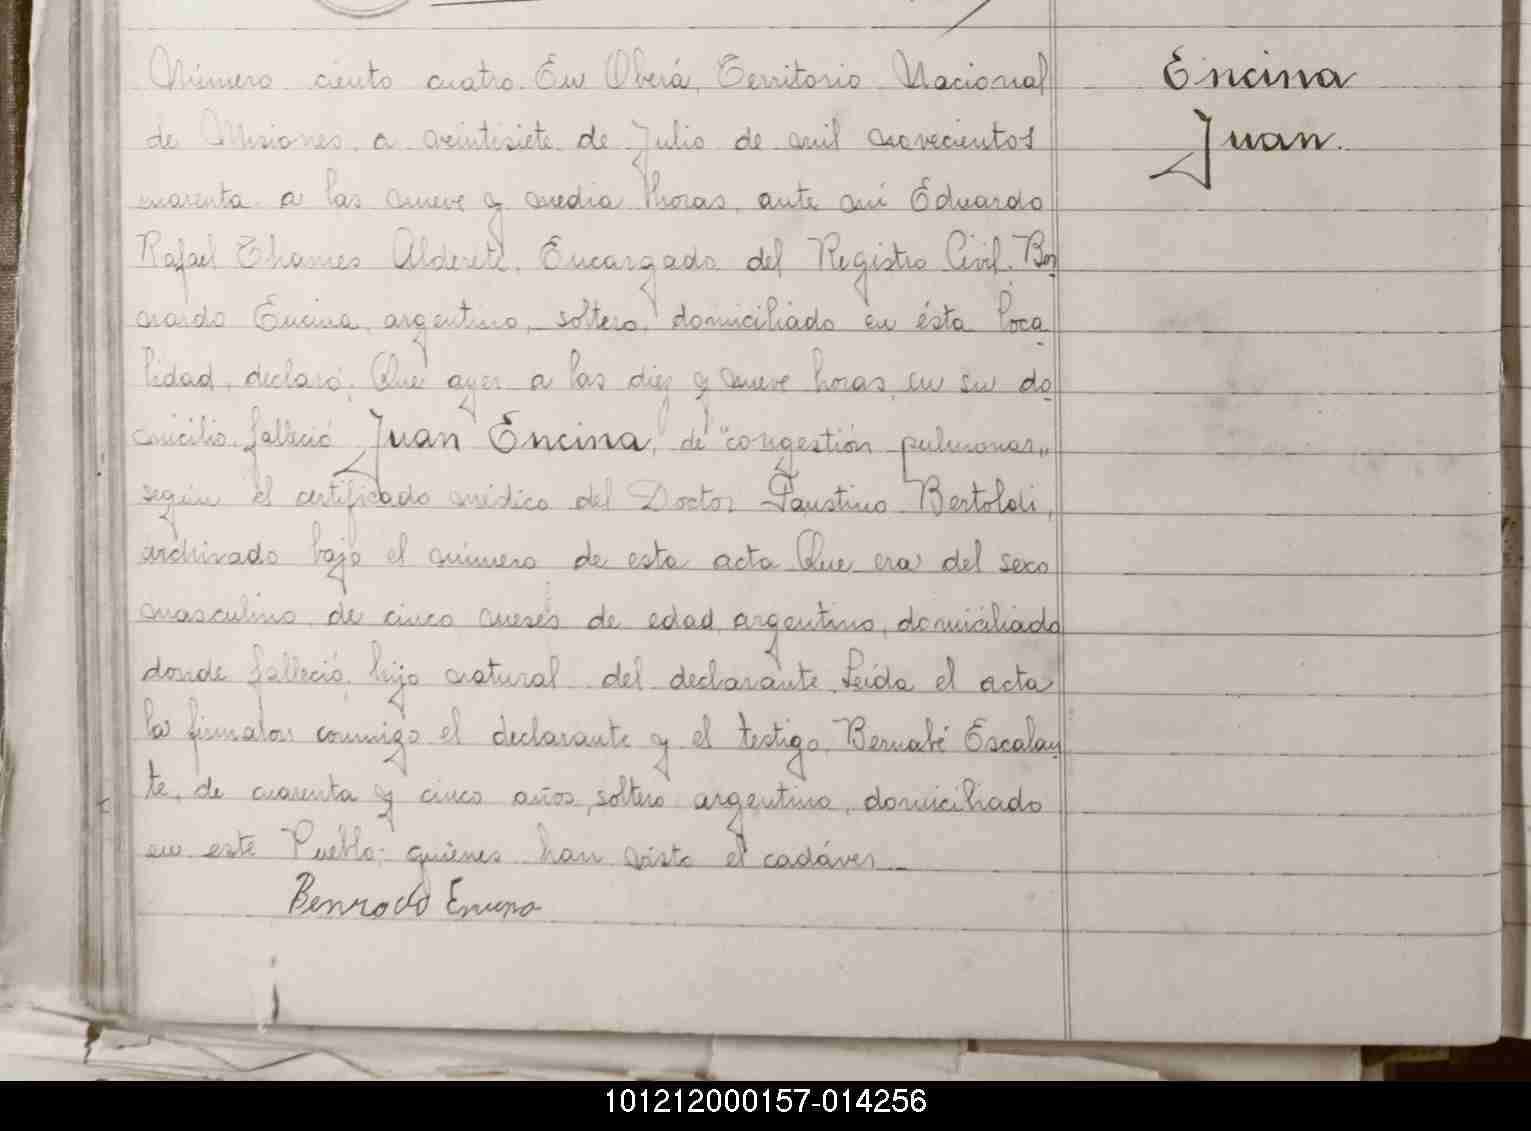 Número ciento cuatro. En Oberá, Territorio Nacional
de Misiones, a veintisiete de Julio de mil novecientos
cuarenta a las nueve y media horas, ante mí Eduardo
Rafael Thames Alderete, Encargado del Registro Civil. Ber
nardo Encina, argentino, soltero, domiciliado en ésta loca
lidad, declaró: Que ayer a las diez y nueve horas, en su do
micilio falleció Juan Encina, de "congestión pulmonar"
según el certificado médico del Doctor Faustino Bertoldi,
archivado bajo el número de esta acta Que era del sexo
masculino, de cinco meses de edad, argentino, domiciliado
donde falleció, hijo natural del declarante. Leída el acta
la firmaron conmigo el declarante y el testigo, Bernabé Escalan
te, de cuarenta y cinco años, soltero argentino, domiciliado
en este Pueblo; quienes han visto el cadáver
Encina
Juan.
101212000157-014256